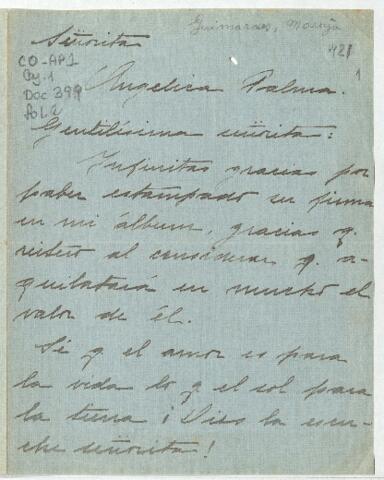 Guimaraes, Maruja
Señorita
421
CO-AP1
Cj.1
Doc 399
fol.2
1
Angelica Palma.
Gentilísima señorita:
Infinitas gracias por
haber estampado su firma
en mi álbum, gracias q.
reitero al considerar q. a-
quilatará en mucho el
valor de él.
Sé q el amor es para
la vida lo q el sol para
la tierra ¡Dios la escu-
che señorita!